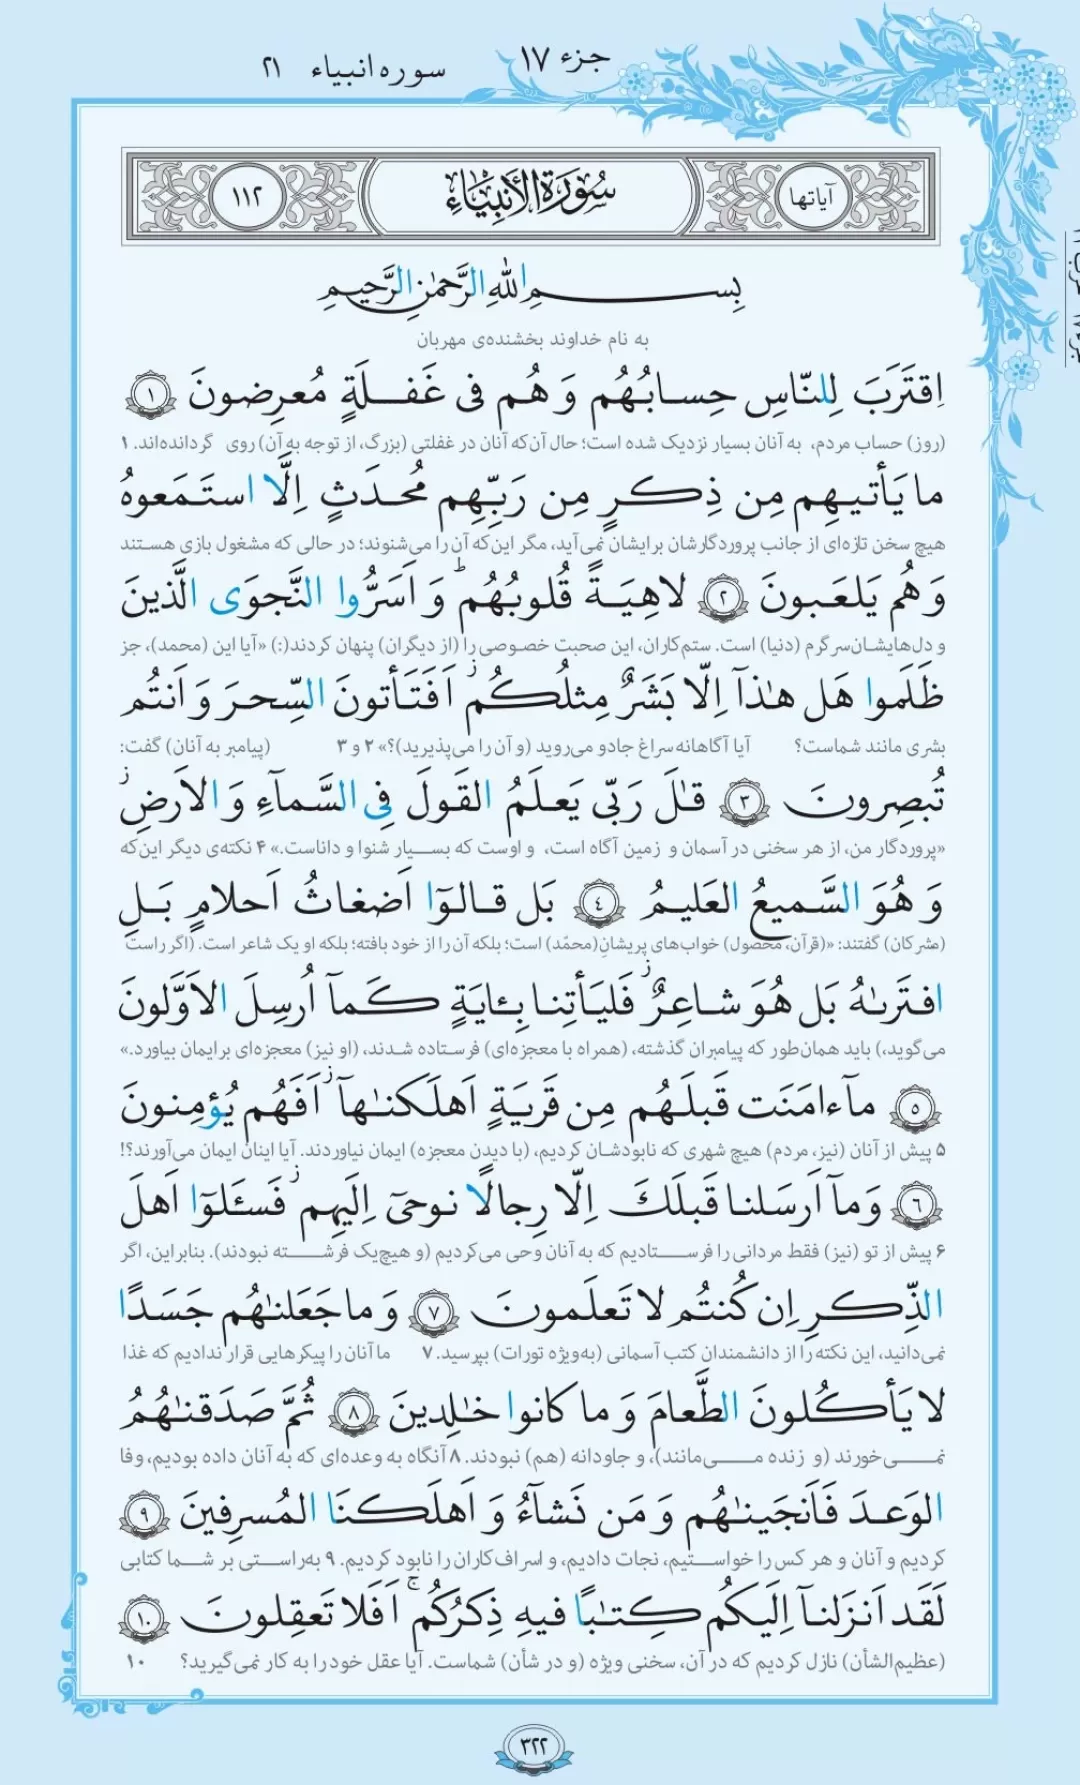 جزء ۱۷
سوره انبیاء ۲۱
آیاتها
سُورَةُ الأَنبِيَاءِ
۱۱۲
بِسـمِ اللّٰهِ الرَّحمٰنِ الرَّحيمِ
به نام خداوند بخشنده‌ی مهربان
اِقتَرَبَ لِلنّاسِ حِسابُهُم وَ هُم فى غَفلَةٍ مُعرِضونَ ﴿۱﴾
(روز) حساب مردم، به آنان بسیار نزدیک شده است؛ حال آن‌که آنان در غفلتی (بزرگ، از توجه به آن) روی گردانده‌اند. ۱
ما يَأتيهِم مِن ذِكرٍ مِن رَبِّهِم مُحدَثٍ اِلَّا استَمَعوهُ
هیچ سخن تازه‌ای از جانب پروردگارشان برایشان نمی‌آید، مگر این‌که آن را می‌شنوند؛ در حالی که مشغول بازی هستند
وَ هُم يَلعَبونَ ﴿۲﴾ لاهِيَةً قُلوبُهُم ۗ وَ اَسَرُّوا النَّجوَى الَّذينَ
و دل‌هایشان سرگرم (دنیا) است. ستم‌کاران، این صحبت خصوصی را (از دیگران) پنهان کردند(:) «آیا این (محمد)، جز
ظَلَموا هَل هٰذآ اِلّا بَشَرٌ مِثلُكُم ۖ اَفَتَأتونَ السِّحرَ وَ اَنتُم
بشری مانند شماست؟ آیا آگاهانه سراغ جادو می‌روید (و آن را می‌پذیرید)؟» ۲ و ۳ (پیامبر به آنان) گفت:
تُبصِرونَ ﴿۳﴾ قٰلَ رَبّى يَعلَمُ القَولَ فِى السَّمآءِ وَ الاَرضِ ۖ
«پروردگار من، از هر سخنی در آسمان و زمین آگاه است، و اوست که بسیار شنوا و داناست.» ۴ نکته‌ی دیگر این‌که
وَ هُوَ السَّميعُ العَليمُ ﴿٤﴾ بَل قالوٓا اَضغاثُ اَحلامٍ بَلِ
(مشرکان) گفتند: «(قرآن، محصول) خواب‌های پریشانِ(محمّد) است؛ بلکه آن را از خود بافته؛ بلکه او یک شاعر است. (اگر راست
افتَرىٰهُ بَل هُوَ شاعِرٌ ۖ فَليَأتِنا بِـٔايَةٍ كَمآ اُرسِلَ الاَوَّلونَ
می‌گوید،) باید همان‌طور که پیامبران گذشته، (همراه با معجزه‌ای) فرستاده شدند، (او نیز) معجزه‌ای برایمان بیاورد.»
﴿۵﴾ مآ ءامَنَت قَبلَهُم مِن قَريَةٍ اَهلَكنٰهآ ۖ اَفَهُم يُؤمِنونَ
۵ پیش از آنان (نیز، مردم) هیچ شهری که نابودشان کردیم، (با دیدن معجزه) ایمان نیاوردند. آیا اینان ایمان می‌آورند؟!
﴿٦﴾ وَ مآ اَرسَلنا قَبلَكَ اِلّا رِجالًا نوحىٓ اِلَيهِم ۖ فَسـَٔلوٓا اَهلَ
۶ پیش از تو (نیز) فقط مردانی را فرستادیم که به آنان وحی می‌کردیم (و هیچ‌یک فرشته نبودند). بنابراین، اگر
الذِّكرِ اِن كُنتُم لا تَعلَمونَ ﴿۷﴾ وَ ما جَعَلنٰهُم جَسَدًا
نمی‌دانید، این نکته را از دانشمندان کتب آسمانی (به‌ویژه تورات) بپرسید. ۷ ما آنان را پیکرهایی قرار ندادیم که غذا
لا يَأكُلونَ الطَّعامَ وَ ما كانوا خٰلِدينَ ﴿۸﴾ ثُمَّ صَدَقنٰهُمُ
نمی‌خورند (و زنده می‌مانند)، و جاودانه (هم) نبودند. ۸ آنگاه به وعده‌ای که به آنان داده بودیم، وفا
الوَعدَ فَاَنجَينٰهُم وَ مَن نَشآءُ وَ اَهلَكنَا المُسرِفينَ ﴿۹﴾
کردیم و آنان و هر کس را خواستیم، نجات دادیم، و اسراف‌کاران را نابود کردیم. ۹ به‌راستی بر شما کتابی
لَقَد اَنزَلنآ اِلَيكُم كِتٰبًا فيهِ ذِكرُكُم ۚ اَفَلا تَعقِلونَ ﴿۱۰﴾
(عظیم‌الشأن) نازل کردیم که در آن، سخنی ویژه (و در شأن) شماست. آیا عقل خود را به کار نمی‌گیرید؟ ۱۰
۳۲۲